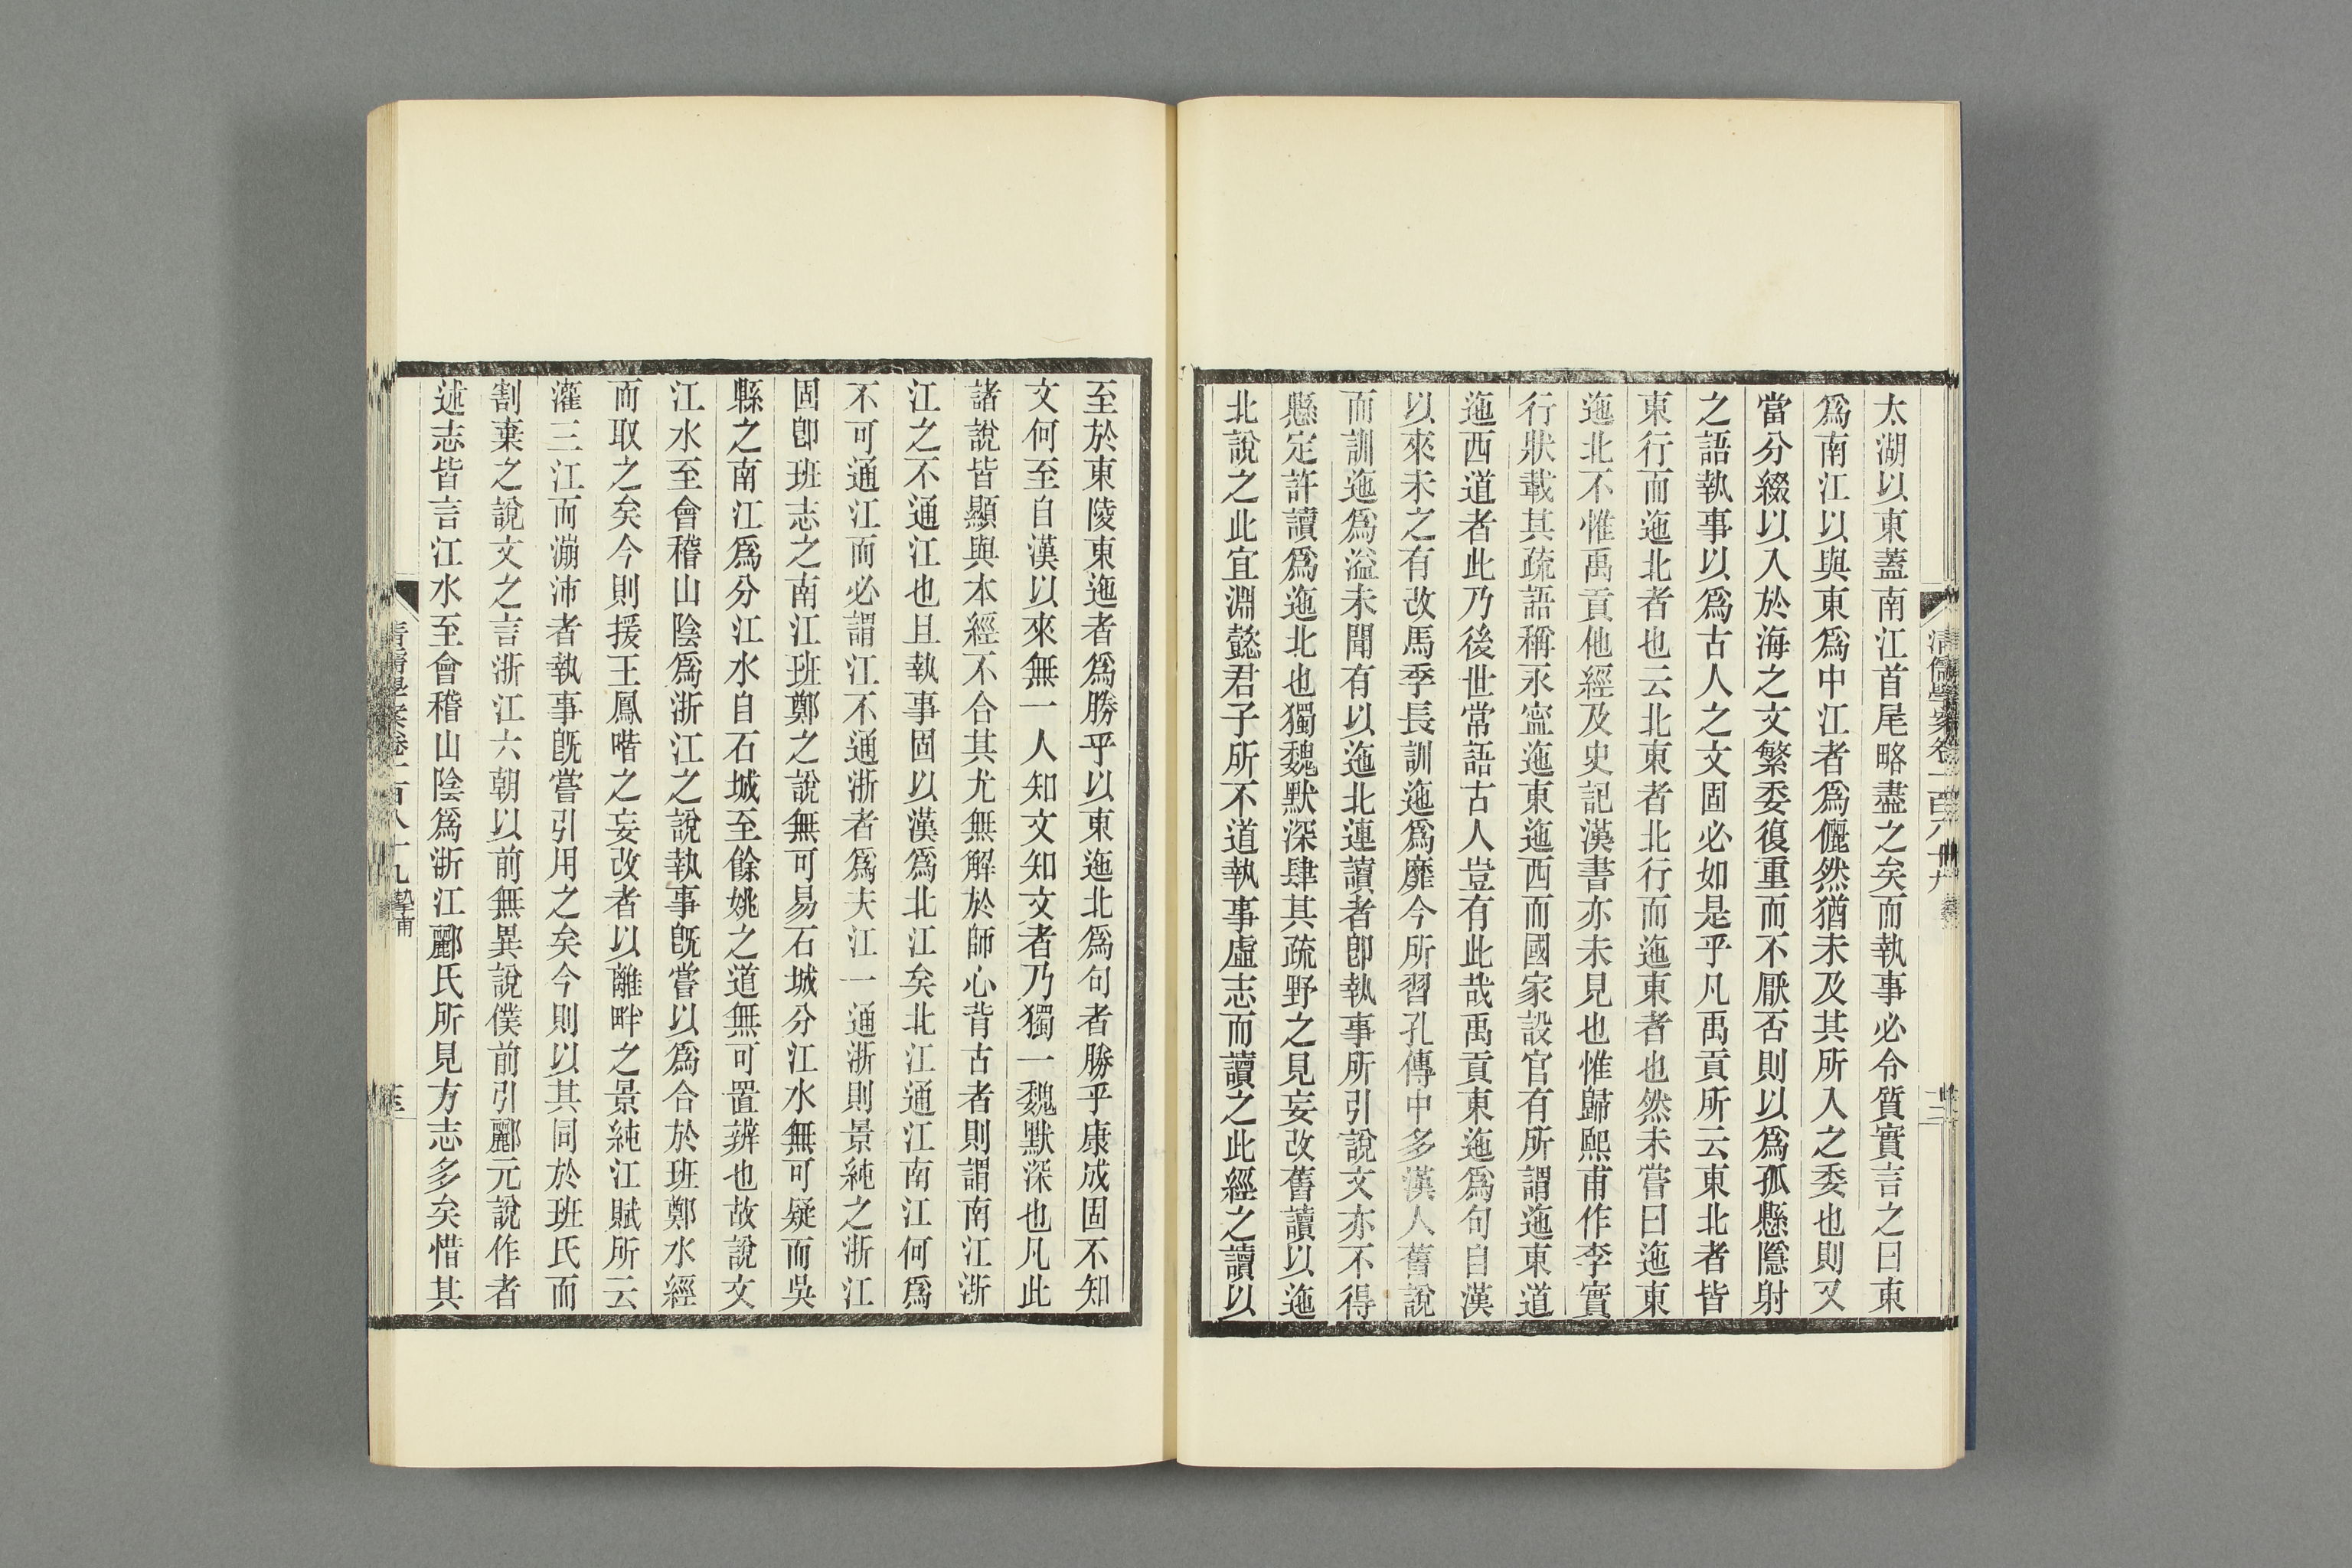 太湖以東蓋南江首尾略盡之矣而執事必令質實言之曰東
爲南江以與東爲中江者爲儷然猶未及其所入之委也則又
當分綴以入於海之文繁委復重而不厭否則以爲孤懸隱射
之語執事以爲古人之文固必如是乎凡禹貢所云東北者皆
東行而迤北者也云北東者北行而迤東者也然未嘗曰迤東
迤北不惟禹貢他經及史記漢書亦未見也惟歸熙甫作李實
行狀載其疏語稱永寍迤東迤西而國家設官有所謂迤東道
迤西道者此乃後世常語古人豈有此哉禹貢東迤爲句自漢
以來未之有改馬季長訓迤爲靡今所習孔傳中多漢人舊說
而訓迤爲溢未聞有以迤北連讀者卽執事所引說文亦不得
懸定許讀爲迤北也獨魏默深肆其疏野之見妄改舊讀以迤
北說之此宜淵懿君子所不道執事虛志而讀之此經之讀以
清儒學案卷一百八十九
至於東陵東迤者爲勝乎以東迤北爲句者勝乎康成固不知
文何至自漢以來無一人知文知文者乃獨一魏默深也凡此
諸說皆顯與本經不合其尤無解於師心背古者則謂南江浙
江之不通江也且執事固以漢爲北江矣北江通江南江何爲
不可通江而必謂江不通浙者爲夫江一通浙則景純之浙江
固卽班志之南江班鄭之說無可易石城分江水無可疑而吳
縣之南江爲分江水自石城至餘姚之道無可置辨也故說文
江水至會稽山陰爲浙江之說執事旣嘗以爲合於班鄭水經
而取之矣今則援王鳳喈之妄改者以離畔之景純江賦所云
灌三江而漰沛者執事旣嘗引用之矣今則以其同於班氏而
割棄之說文之言浙江六朝以前無異說僕前引酈元說作者
述志皆言江水至會稽山陰爲浙江酈氏所見方志多矣惜其
清儒學案卷一百八十九 摯甫